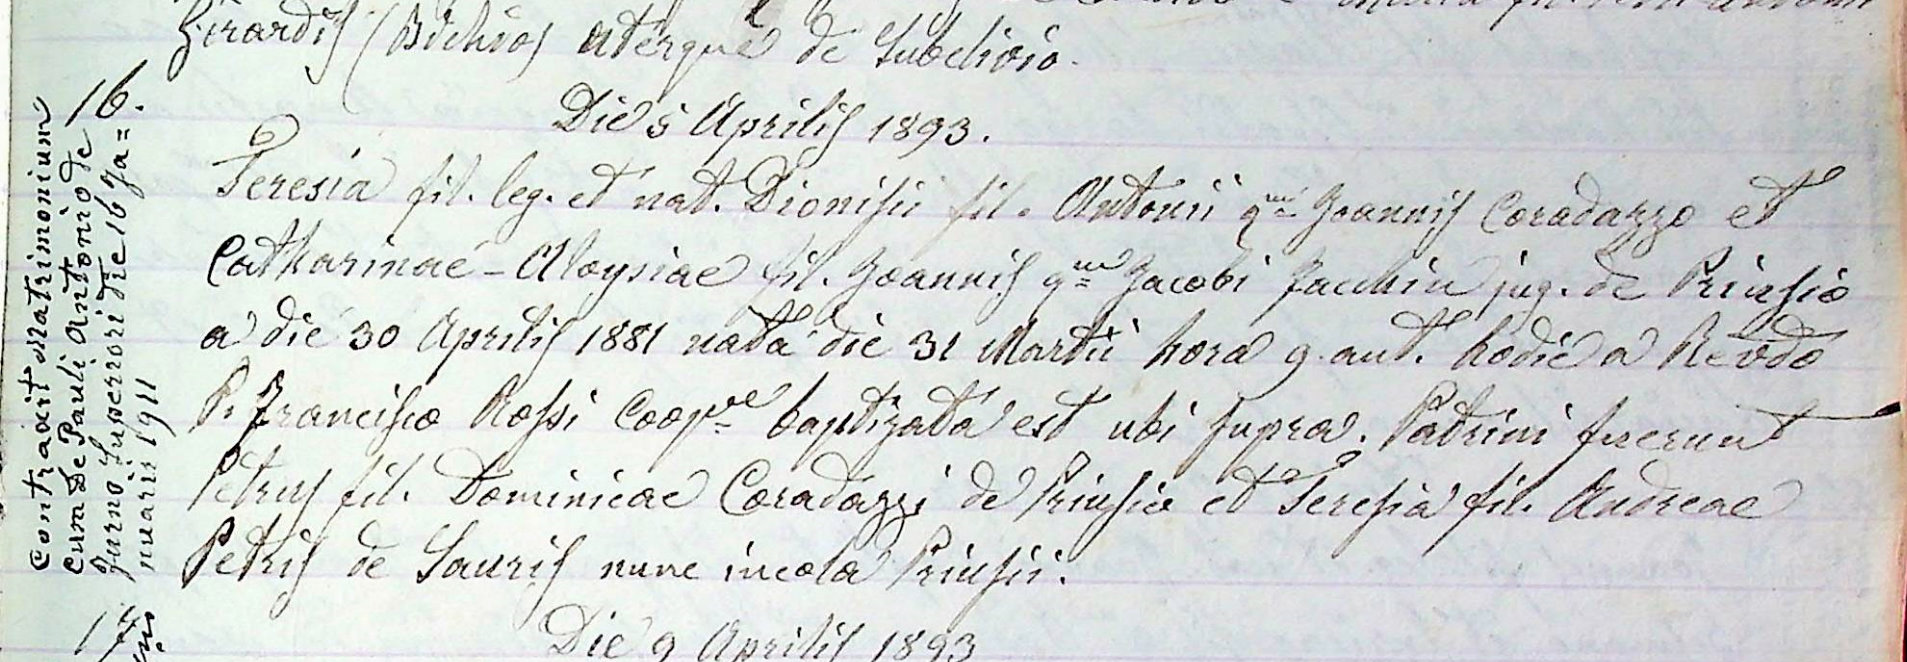 Girardis (Bichio) uterque de Subclivio.
16.
Die 5 Aprilis 1893.
Teresia fil. leg. et nat. Dionisii fil. Antonii qm Joannis Coradazzo et
Catharinae-Aloysiae fil. Joannis qm Jacobi Facchin jug. de Priusio
a die 30 Aprilis 1881 nata die 31 Martii hora 9 ant. hodie a Revdo
P. Francisco Rossi Coopre baptizata est ubi supra. Patrini fuerunt
Petrus fil. Dominicae Coradazzi de Priusio et Teresia fil. Andreae
Petris de Sauris nunc incola Priusii.
Contraxit Matrimonium
cum De Pauli Antonio de
Furno Superiori die 16 Ja=
nuarii 1911
17
Die 9 Aprilis 1893